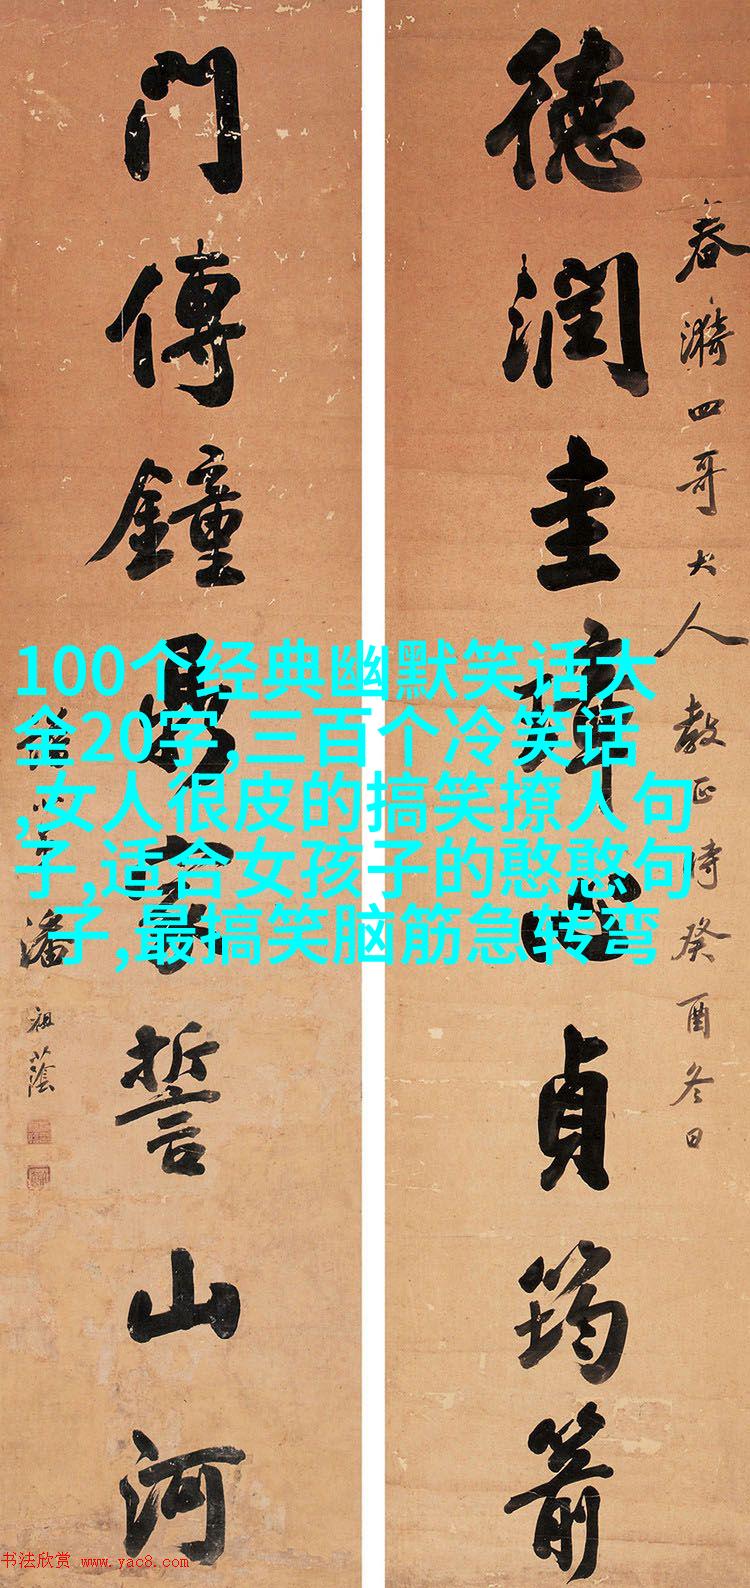 德潤圭璋心貞筠箭
春漪四哥大人教正時癸酉冬日
門傳鐘鼎家誓山河
潘祖蔭
100个经典幽默笑话大
全20字,三百个冷笑话
,女人很皮的搞笑撩人句
子,适合女孩子的憨憨句
子,最搞笑脑筋急转弯
书法欣赏 www.yac8.com